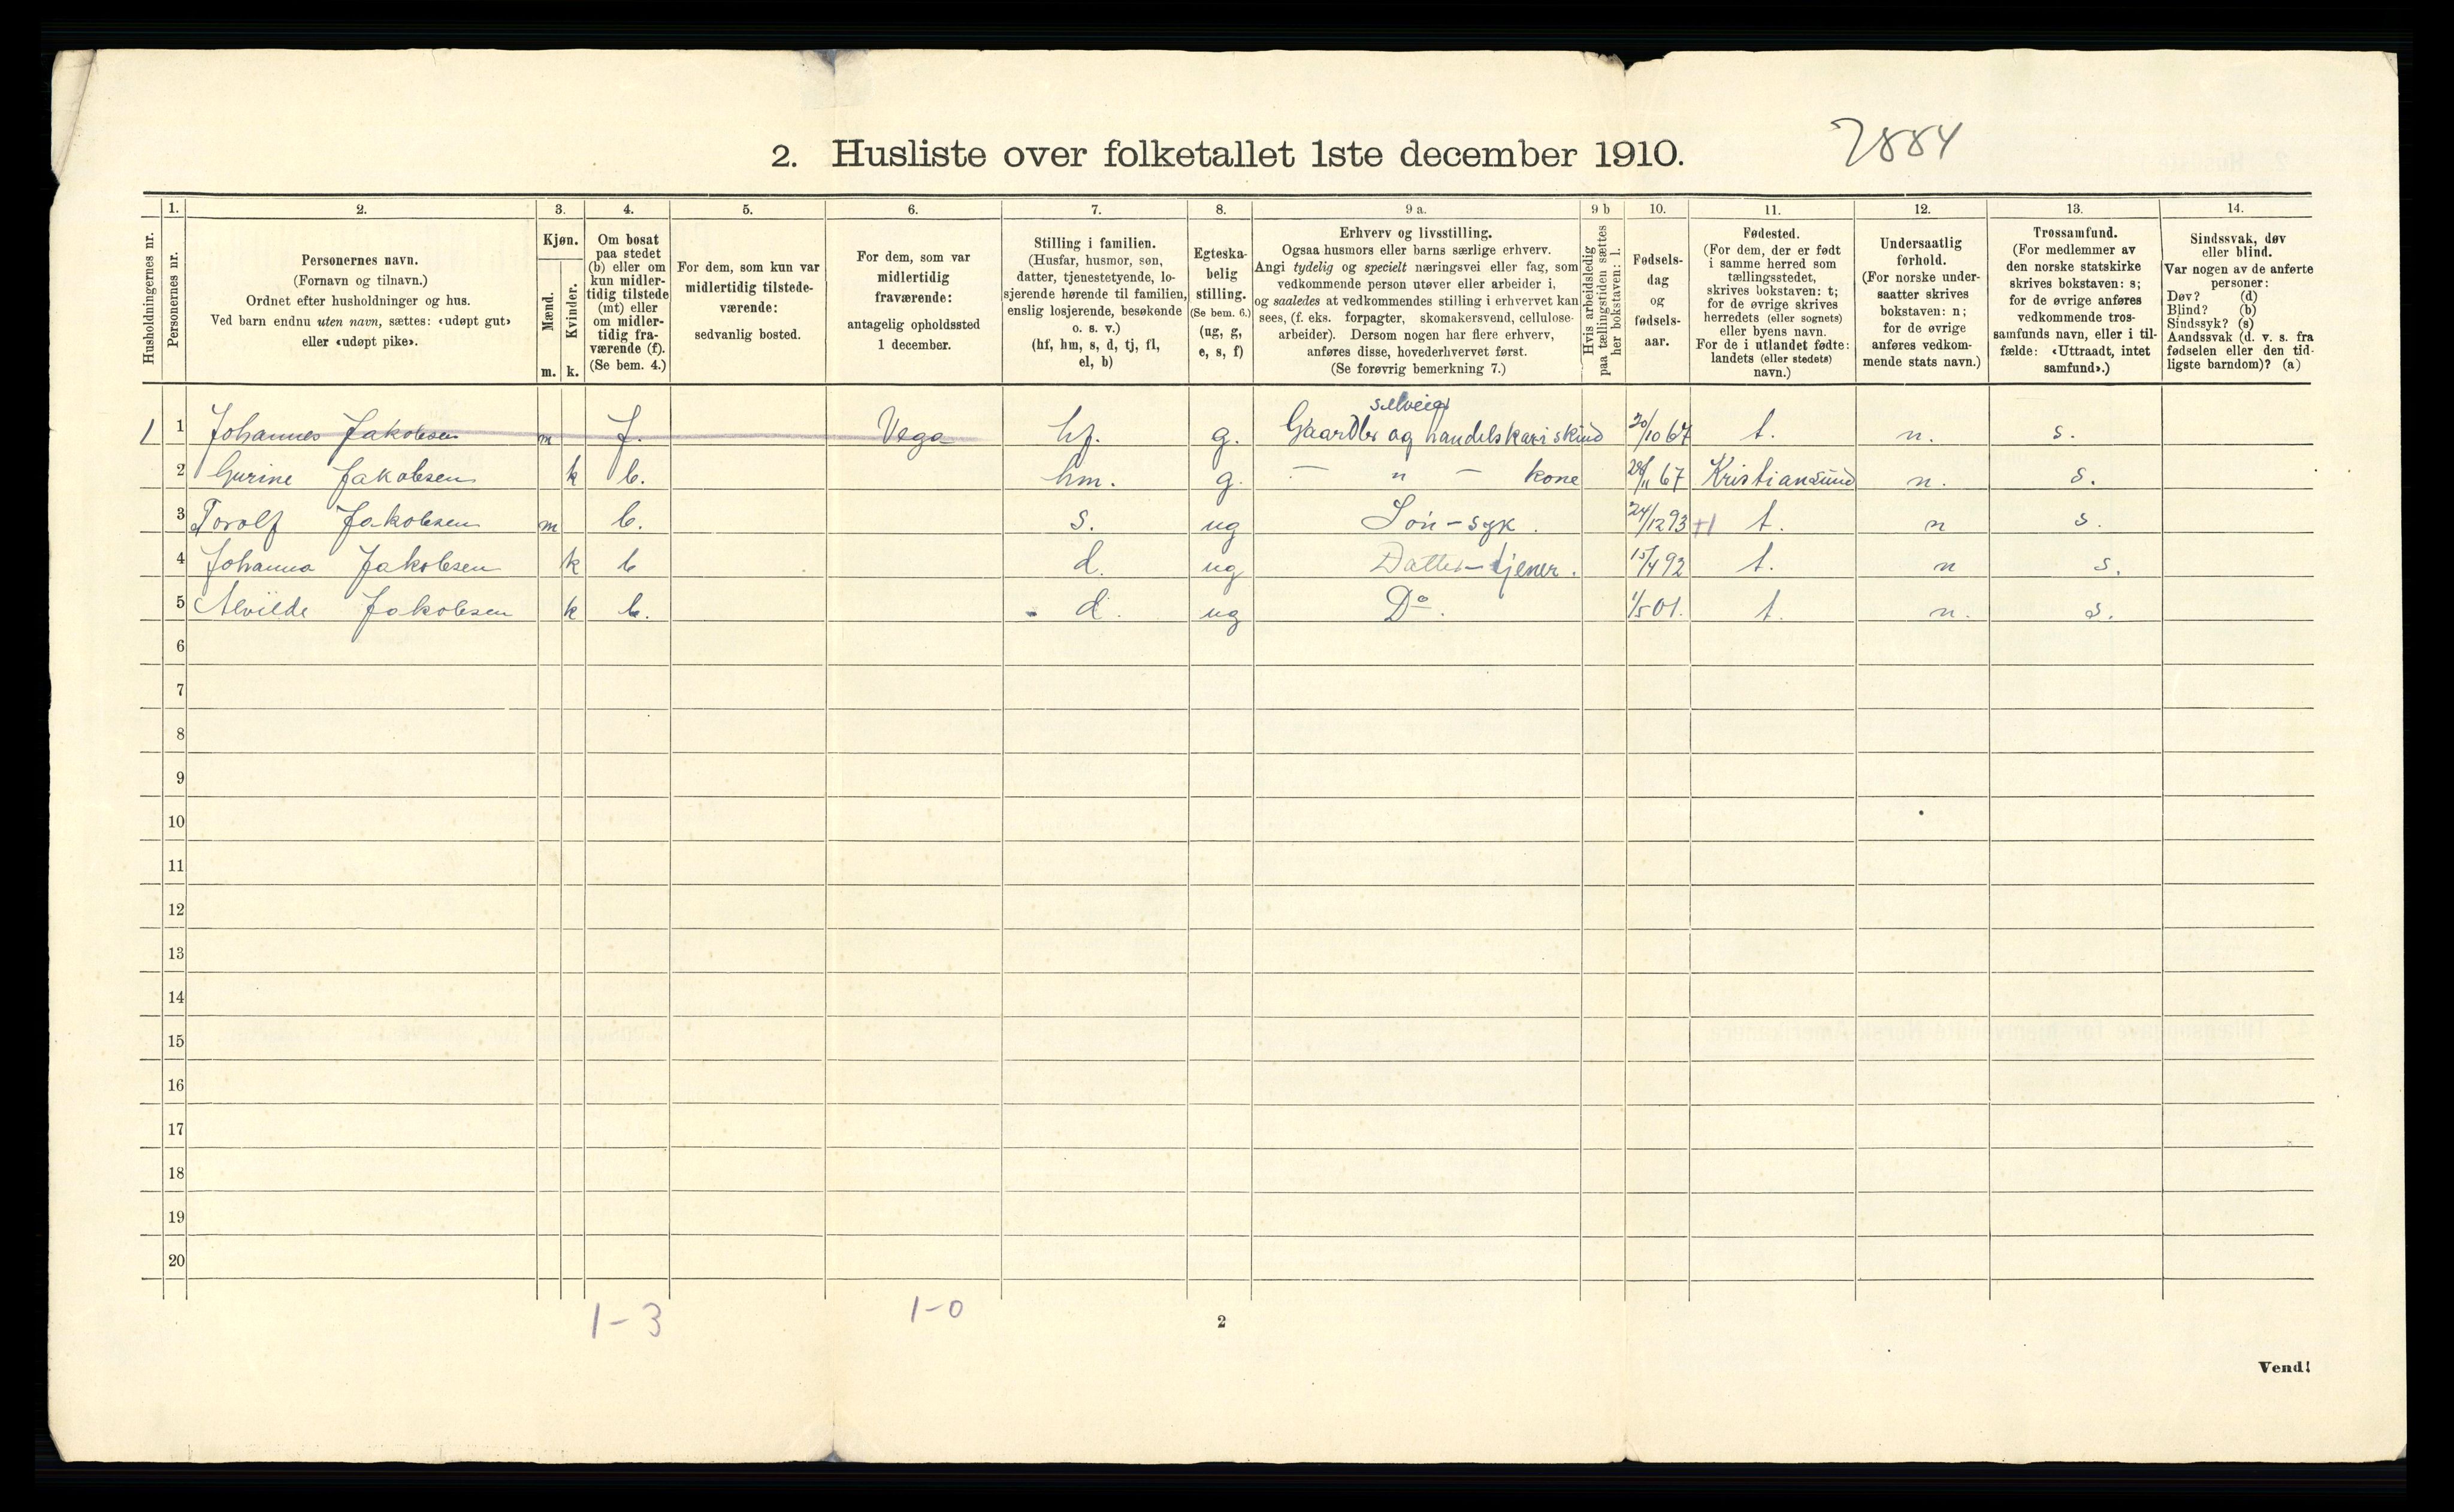 2. Husliste over folketallet 1ste december 1910.
7884
1. 2. 3. 4. 5. 6. 7. 8. 9 a. 9 b 10. 11. 12. 13. 14.
Husholdningernes nr.
Personernes nr.
Personernes navn.
(Fornavn og tilnavn.)
Ordnet efter husholdninger og hus.
Ved barn endnu uten navn, sættes: «udøpt gut»
eller «udøpt pike».
Kjøn.
Mænd.
Kvinder.
m. k.
Om bosat
paa stedet
(b) eller om
kun midler-
tidig tilstede
(mt) eller
om midler-
tidig fra-
værende (f).
(Se bem. 4.)
For dem, som kun var
midlertidig tilstede-
værende:
sedvanlig bosted.
For dem, som var
midlertidig
fraværende:
antagelig opholdssted
1 december.
Stilling i familien.
(Husfar, husmor, søn,
datter, tjenestetyende, lo-
sjerende hørende til familien,
enslig losjerende, besøkende
o. s. v.)
(hf, hm, s, d, tj, fl,
el, b)
Egteska-
belig
stilling.
(Se bem. 6.)
(ug, g,
e, s, f)
Erhverv og livsstilling.
Ogsaa husmors eller barns særlige erhverv.
Angi tydelig og specielt næringsvei eller fag, som
vedkommende person utøver eller arbeider i,
og saaledes at vedkommendes stilling i erhvervet kan
sees, (f. eks. forpagter, skomakersvend, cellulose-
arbeider). Dersom nogen har flere erhverv,
anføres disse, hovederhvervet først.
(Se forøvrig bemerkning 7.)
Hvis arbeidsledig
paa tællingstiden sættes
her bokstaven: l.
Fødsels-
dag
og
fødsels-
aar.
Fødested.
(For dem, der er født
i samme herred som
tællingsstedet,
skrives bokstaven: t;
for de øvrige skrives
herredets (eller sognets)
eller byens navn.
For de i utlandet fødte:
landets (eller stedets)
navn.)
Undersaatlig
forhold.
(For norske under-
saatter skrives
bokstaven: n;
for de øvrige
anføres vedkom-
mende stats navn.)
Trossamfund.
(For medlemmer av
den norske statskirke
skrives bokstaven: s;
for de øvrige anføres
vedkommende tros-
samfunds navn, eller i til-
fælde: «Uttraadt, intet
samfund».)
Sindssvak, døv
eller blind.
Var nogen av de anførte
personer:
Døv? (d)
Blind? (b)
Sindssyk? (s)
Aandssvak (d. v. s. fra
fødselen eller den tid-
ligste barndom)? (a)
selveier
1 1 Johannes Jakobsen m f. Vega hf. g. Gaardbr og handelskar i skind 20/10 67 t. n. s.
2 Gurine Jakobsen k b. hm. g. — " — kone 28/11 67 Kristiansund n. s.
3 Torolf Jakobsen m b. s. ug Søn - syk. 24/12 93 +1 t. n s.
4 Johanna Jakobsen k b d. ug Datter - tjener. 15/4 92 t. n s.
5 Alvilde Jakobsen k b. d. ug Do. 1/5 01. t. n. s.
6
7
8
9
10
11
12
13
14
15
16
17
18
19
20
1-3 1-0
2
Vend!